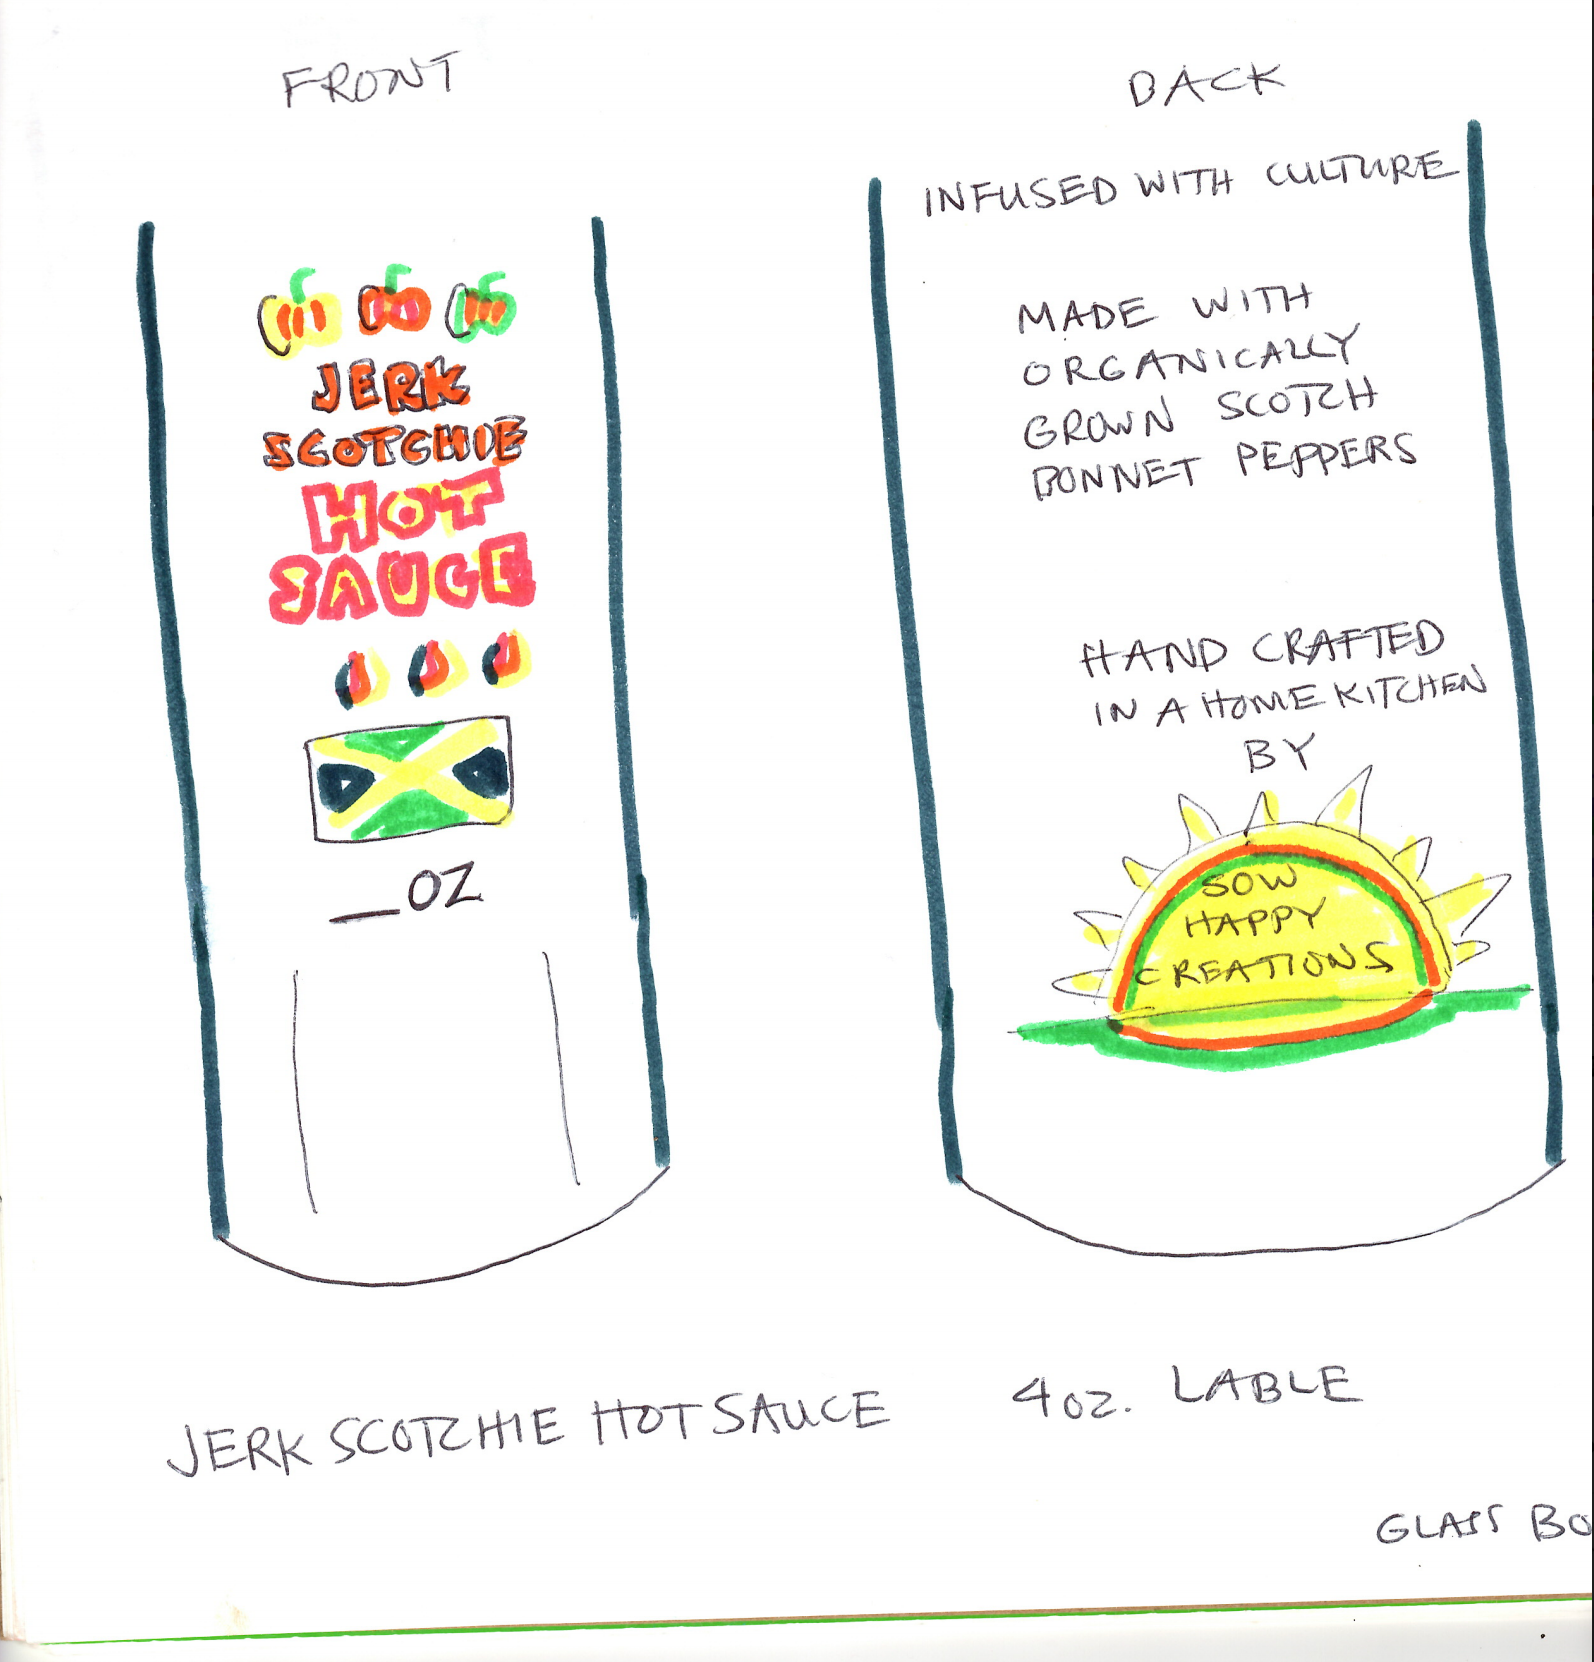 FRONT
JERK
SCOTCHIE
HOT
SAUCE
__OZ
BACK
INFUSED WITH CULTURE
MADE WITH
ORGANICALLY
GROWN SCOTCH
BONNET PEPPERS
HAND CRAFTED
IN A HOME KITCHEN
BY
SOW
HAPPY
CREATIONS
JERK SCOTCHIE HOT SAUCE 4 OZ. LABLE
GLASS BO